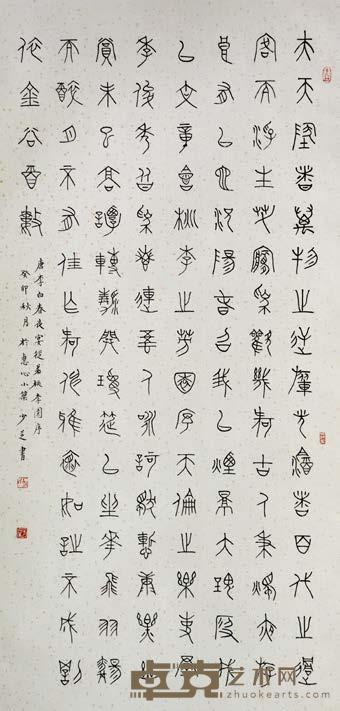 夫天地者萬物之逆旅光陰者百代之過
客而浮生若夢為歡幾何古人秉燭夜遊
良有以也況陽春召我以煙景大塊假我
以文章會桃李之芳園序天倫之樂事群
季俊秀皆為惠連吾人詠歌獨慚康樂幽
賞未已高談轉清開瓊筵以坐花飛羽觴
而醉月不有佳作何伸雅懷如詩不成罰
依金谷酒數
唐李白春夜宴從弟桃李園序
癸卯秋月於惠心小築少書
卓克艺术网
zhuokearts.com